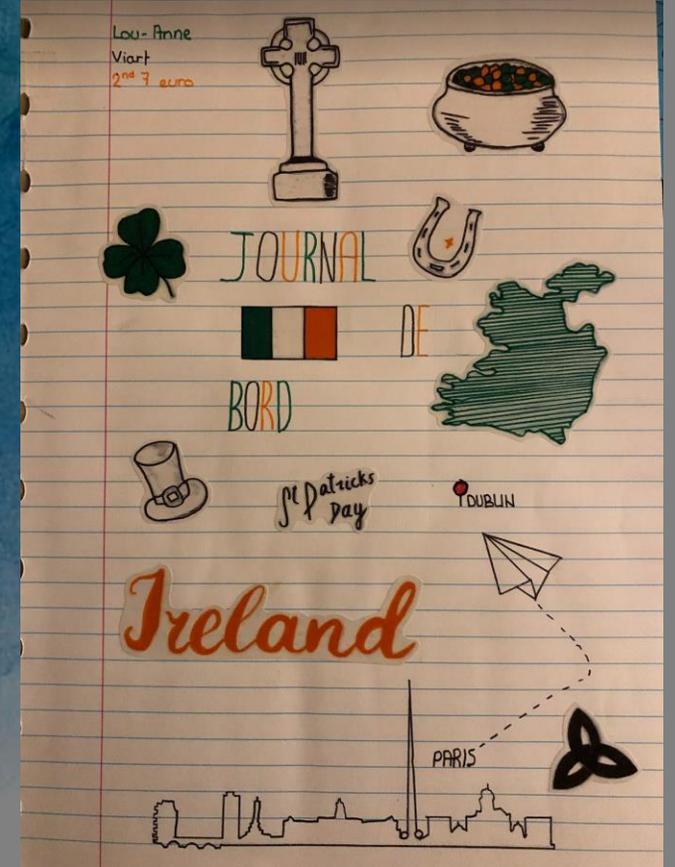 Lou-Anne
Viart
2nd 7 euro
JOURNAL
DE
BORD
St Patricks
Day
DUBLIN
Ireland
PARIS